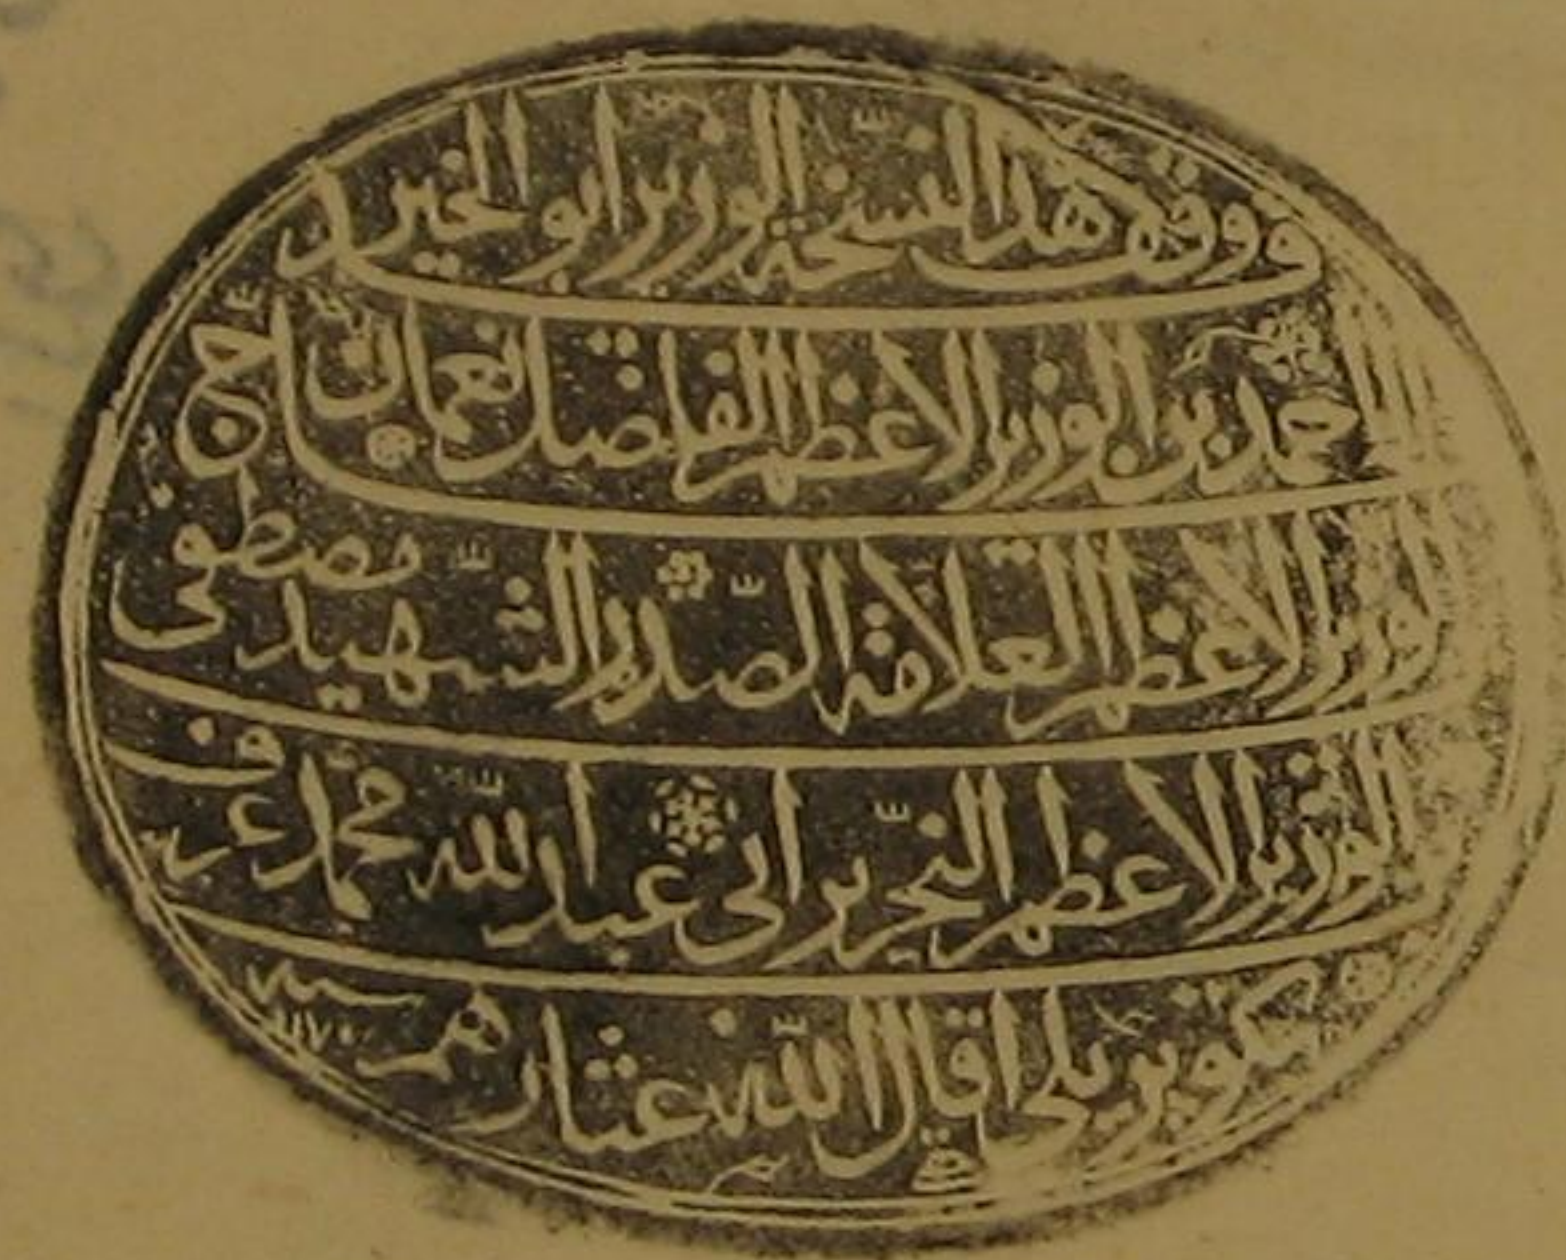 وقف هذه النسخة الوزير ابو الخير ا
حمد بن الوزير الاعظم الفاضل نعمان
الوزير الاعظم العلامة الصدر الشهيد مصطفى
الوزير الاعظم النحرير ابى عبد الله محمد عرف
بكوپريلى اقال الله عثارهم سنه ١١٧٠